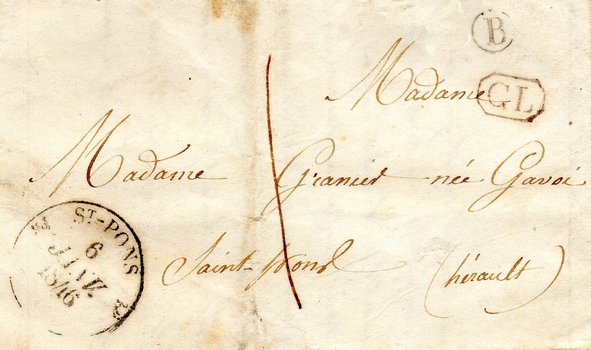 B
GL
Madame
Madame Granier née Gavoi
Saint-pons (hérault)
1
ST-PONS
6
JANV.
1846